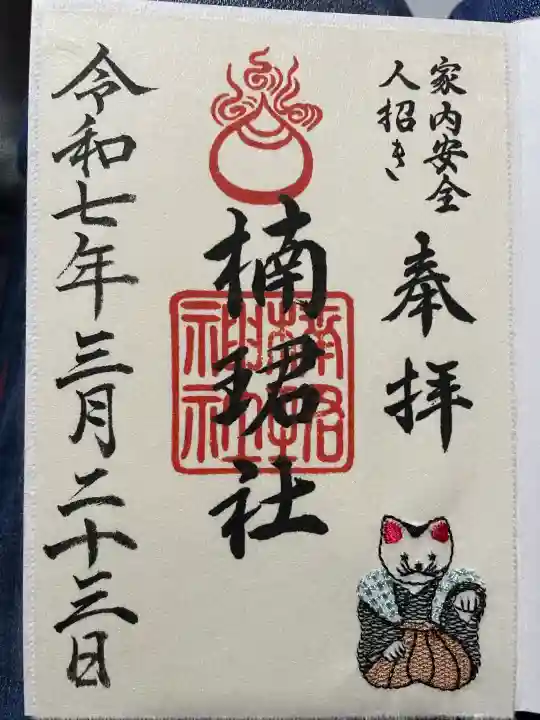 家内安全
人招き
奉拝
楠珺社
令和七年三月二十三日